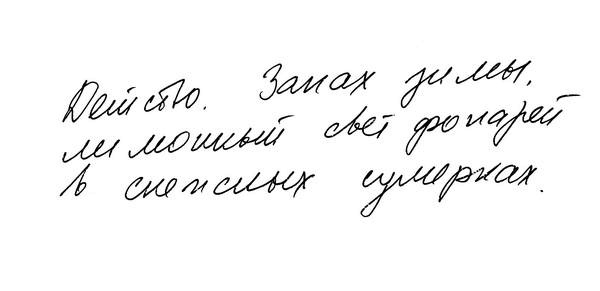 Детство. Запах зимы,
лимонный свет фонарей
в снежных сумерках.